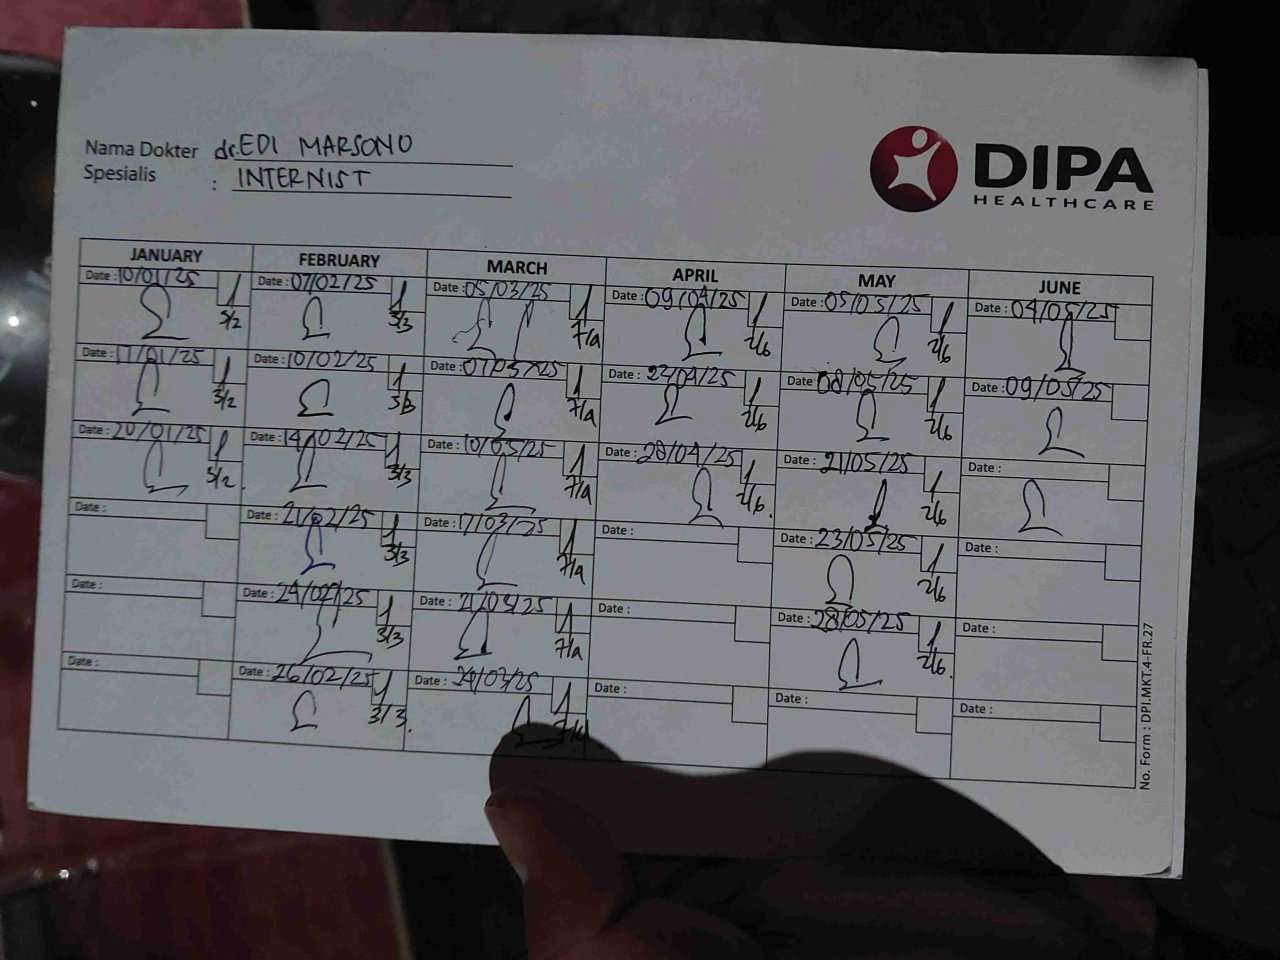 Nama Dokter dr. EDI MARSONO
Spesialis : INTERNIST
DIPA
HEALTHCARE
JANUARY FEBRUARY MARCH APRIL MAY JUNE
Date : 10/01/25 Date : 07/02/25 Date : 05/03/25 Date : 09/04/25 Date : 05/05/25 Date : 04/05/25
3/2 3/3 7/a 2/6 2/6
Date : 17/01/25 Date : 10/02/25 Date : 07/03/25 Date : 23/04/25 Date : 08/05/25 Date : 09/05/25
3/2 3/3 7/a 2/6 2/6
Date : 20/01/25 Date : 14/02/25 Date : 10/03/25 Date : 28/04/25 Date : 21/05/25 Date :
3/2 3/3 7/a 2/6 2/6
Date : Date : 21/02/25 Date : 17/03/25 Date : Date : 23/05/25 Date :
3/3 7/a 2/6
Date : Date : 24/02/25 Date : 21/03/25 Date : Date : 28/05/25 Date :
3/3 7/a 2/6
Date : Date : 26/02/25 Date : 24/03/25 Date : Date : Date :
3/3 7/a
No. Form : DPI.MKT.4-FR.27